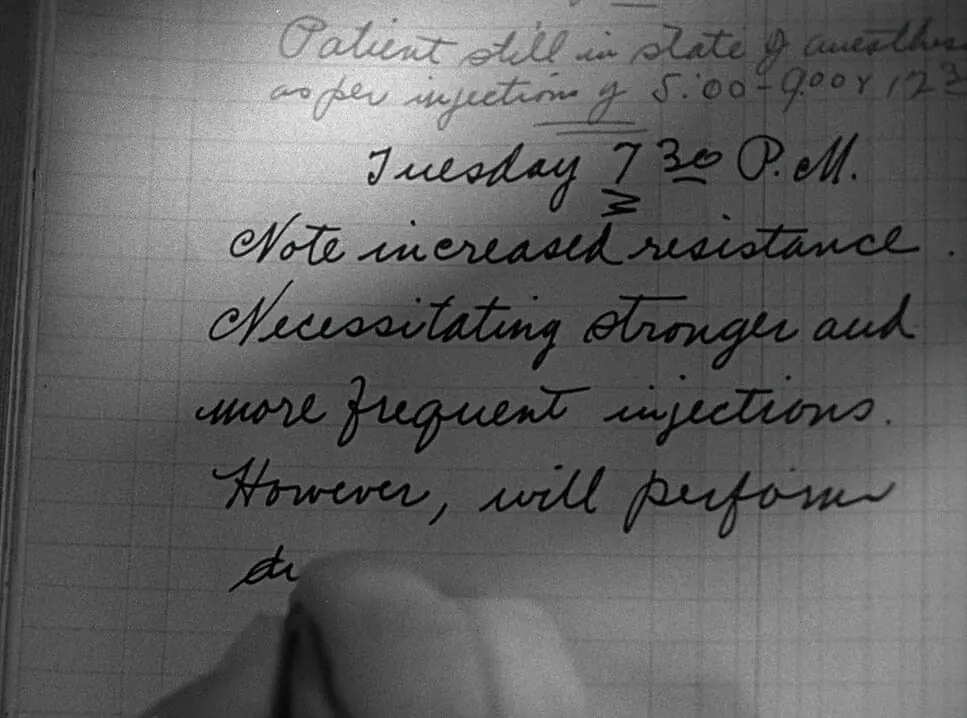 Patient still in state of anesthes
as per injections of 5:00-9:00 & 12 3
Tuesday 7 30 P.M.
Note increased resistance.
Necessitating stronger and
more frequent injections.
However, will perform